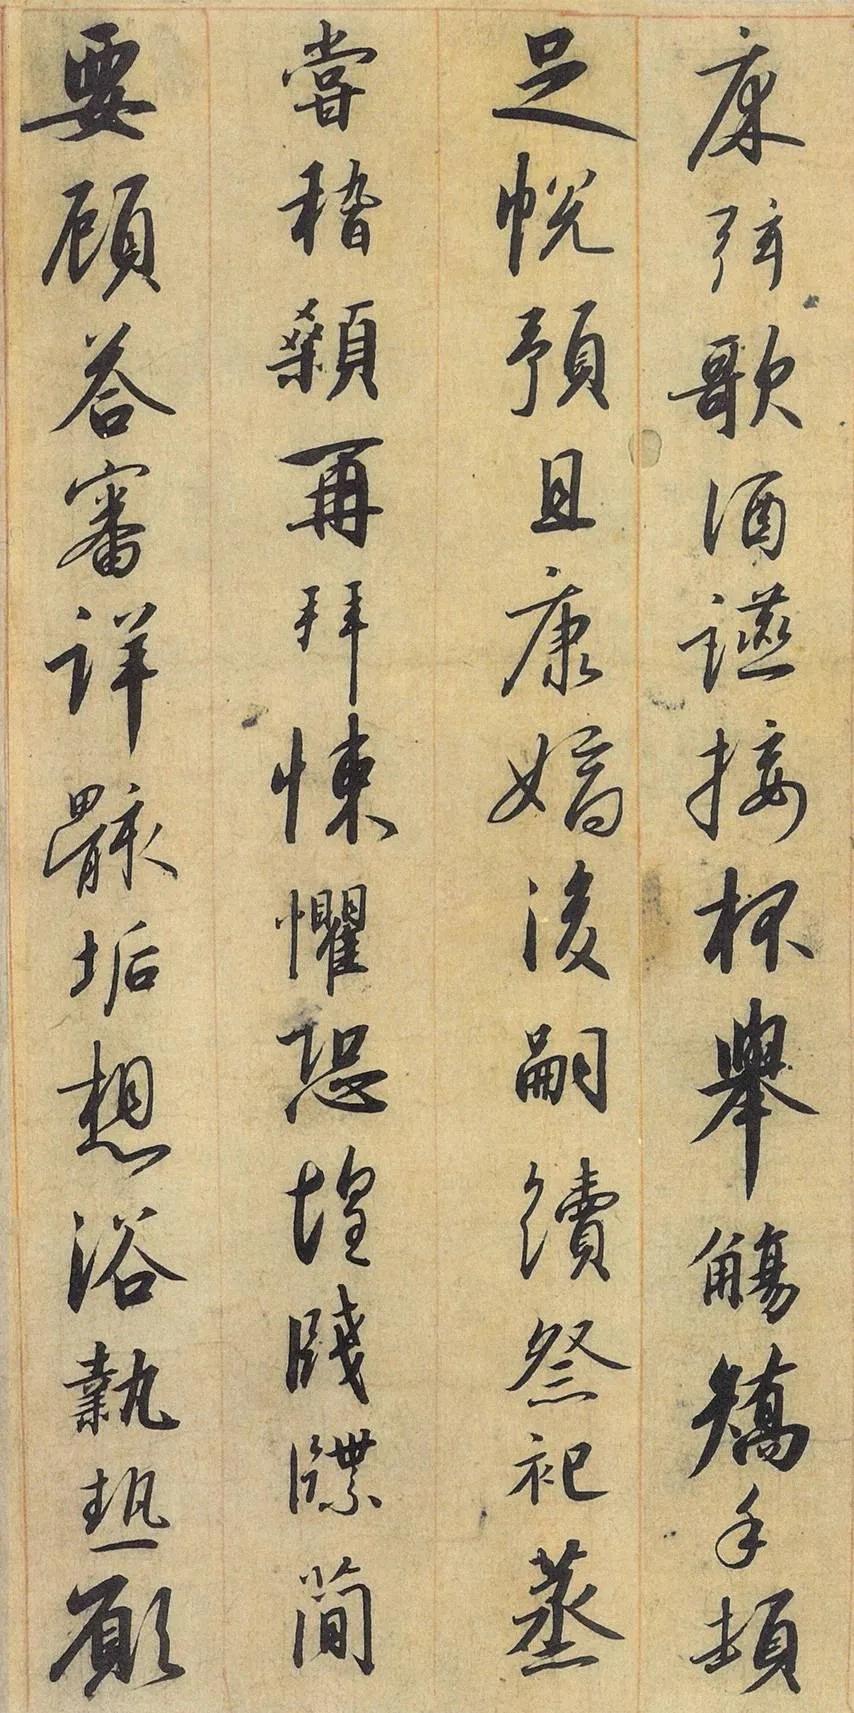 床弦歌酒讌接杯舉觴矯手頓
足悅預且康嫡後嗣續祭祀蒸
嘗稽顙再拜悚懼恐惶牋牒簡
要顧答審詳骸垢想浴執熱願